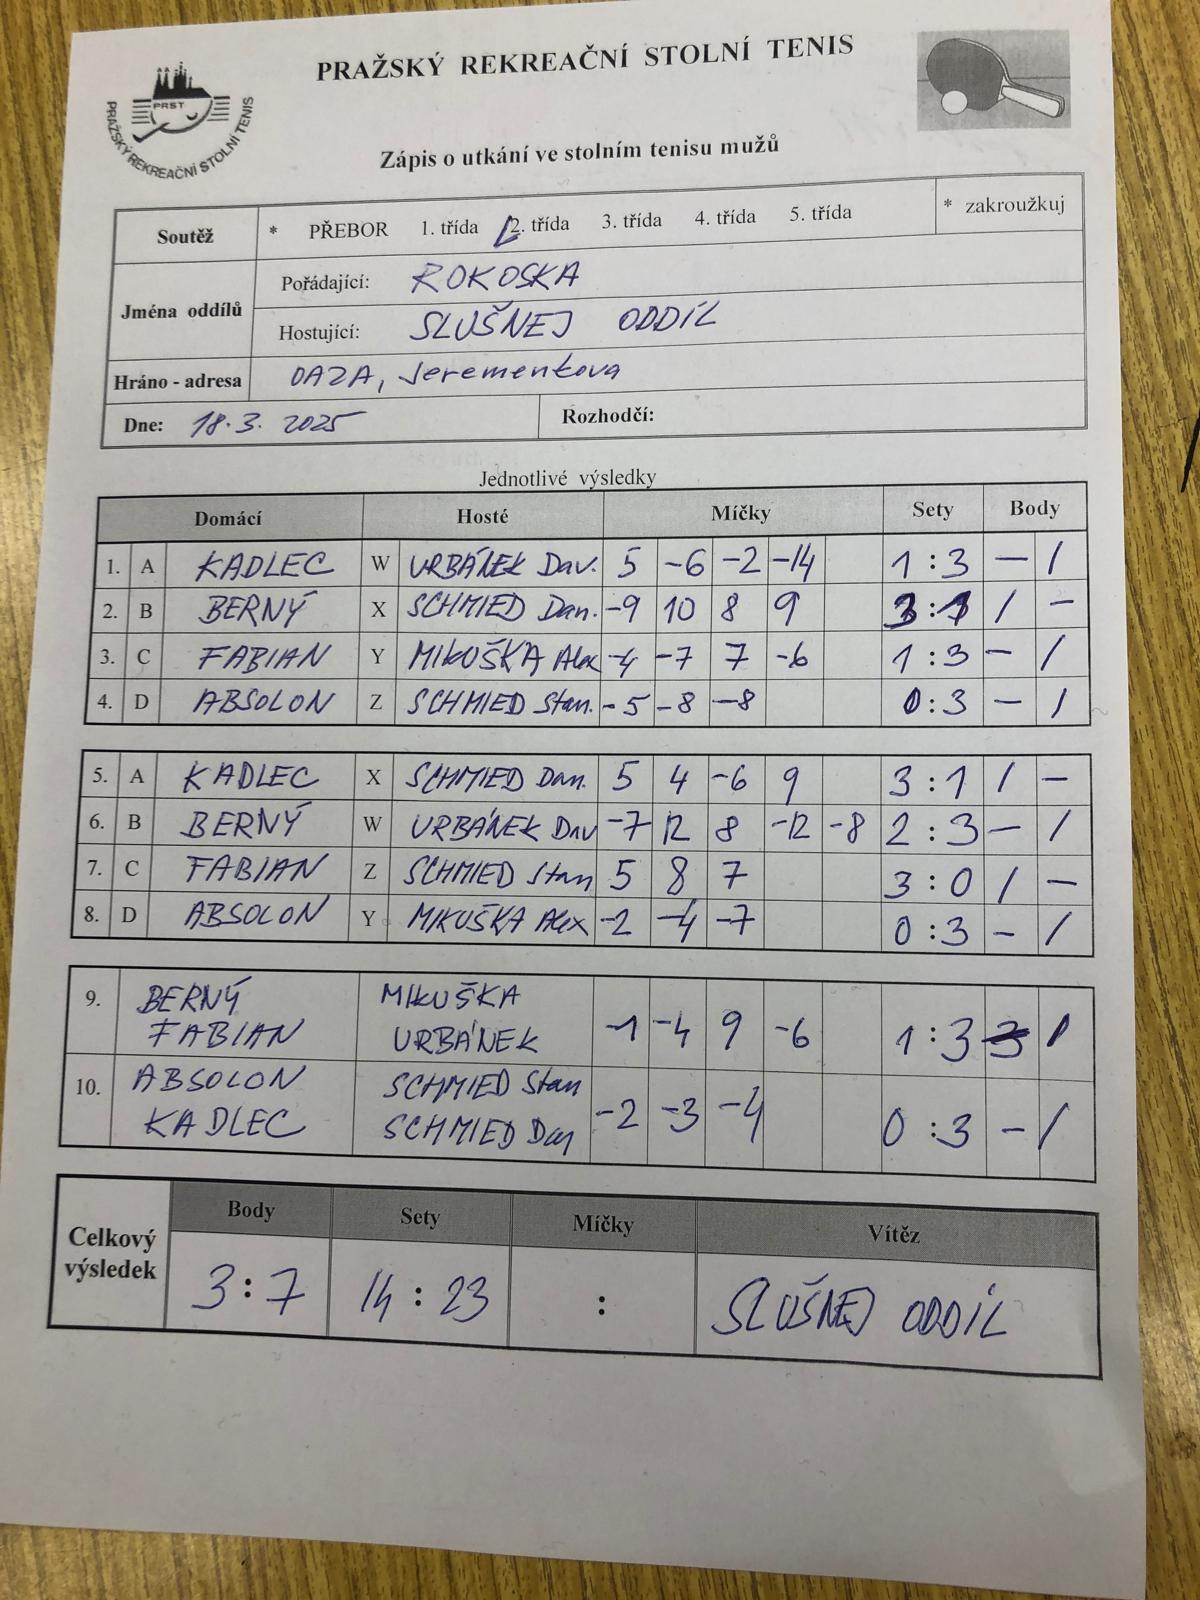 PRAŽSKÝ REKREAČNÍ STOLNÍ TENIS
PRST
PRAŽSKÝ REKREAČNÍ STOLNÍ TENIS
Zápis o utkání ve stolním tenisu mužů
Soutěž * PŘEBOR 1. třída 2. třída 3. třída 4. třída 5. třída * zakroužkuj
Jména oddílů
Pořádající: ROKOSKA
Hostující: SLUŠNEJ ODDÍL
Hráno - adresa OAZA, Jeremenkova
Dne: 18.3. 2025 Rozhodčí:
Jednotlivé výsledky
Domácí Hosté Míčky Sety Body
1. A KADLEC W URBÁNEK Dav. 5 -6 -2 -14 1:3 - 1
2. B BERNÝ X SCHMIED Dan. -9 10 8 9 3:1 1 -
3. C FABIAN Y MIKUŠKA Alex -4 -7 7 -6 1:3 - 1
4. D ABSOLON Z SCHMIED Stan. -5 -8 -8 0:3 - 1
5. A KADLEC X SCHMIED Dan. 5 4 -6 9 3:1 1 -
6. B BERNÝ W URBÁNEK Dav -7 12 8 -12 -8 2:3 - 1
7. C FABIAN Z SCHMIED Stan 5 8 7 3:0 1 -
8. D ABSOLON Y MIKUŠKA Alex -2 -4 -7 0:3 - 1
9. BERNÝ MIKUŠKA
FABIAN URBÁNEK -1 -4 9 -6 1:3 3 1
10. ABSOLON SCHMIED Stan
KADLEC SCHMIED Dan -2 -3 -4 0:3 - 1
Celkový výsledek
Body Sety Míčky Vítěz
3:7 14:23 : SLUŠNEJ ODDÍL